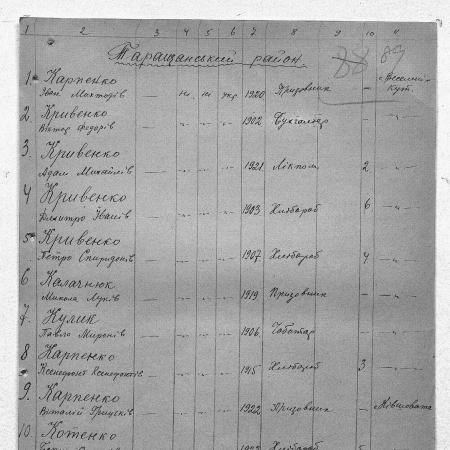 1 2 3 4 5 6 7 8 9 10 11
Таращанський район.
88 89
1. Карпенко
Іван — ні ні укр. 1920 Призовник — Кут.
2. Кривенко
Віктор Федорів — -"- -"- -"- 1902 Бухгалтер — -"-
3. Кривенко
Адам Михайлів — -"- -"- -"- 1921 Лікпом 2 -"-
4 Кривенко
Дмитро Іванів — -"- -"- -"- 1903 Хлібороб 6 -"-
5. Кривенко
Петро Спиридонів — -"- -"- -"- 1907 Хлібороб 4 -"-
6 Калачнюк
Микола Луків — -"- -"- -"- 1919 Призовник — -"-
7. Кулик
Павло Миронів — -"- -"- -"- 1906 Чоботар — -"-
8 Карпенко
Ксенофонт Ксенофонтів — -"- -"- -"- 1915 Хлібороб 3 -"-
9. Карпенко
Віталій Грицьків — -"- -"- -"- 1922 Призовник — Ківшовата
10. Котенко
Хлібороб